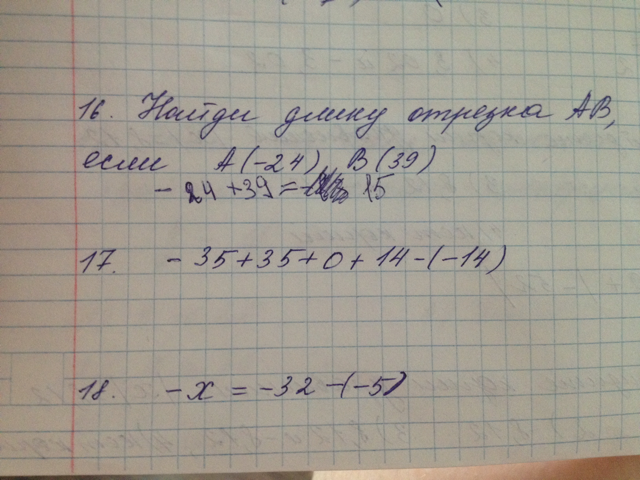 16. Найди длину отрезка AB,
если A(-24), B(39)
- 24 + 39 = 15
17. - 35 + 35 + 0 + 14 - (-14)
18. - x = -32 - (-5)